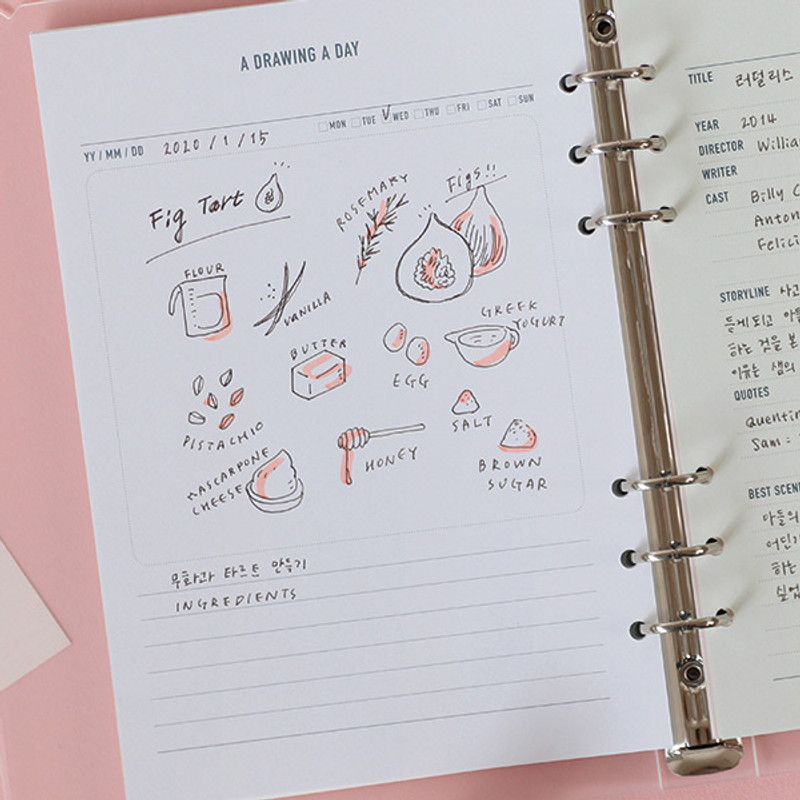 A DRAWING A DAY
YY / MM / DD 2020 / 1 / 15
MON TUE V WED THU FRI SAT SUN
Fig Tart
ROSEMARY
Figs!!
FLOUR
VANILLA
BUTTER
EGG
GREEK
YOGURT
PISTACHIO
MASCARPONE
CHEESE
HONEY
SALT
BROWN
SUGAR
무화과 타르트 만들기
INGREDIENTS
TITLE 러덜리스
YEAR 2014
DIRECTOR William
WRITER
CAST Billy
Anton
Felici
STORYLINE 사고
듣게되고
하는 것을 본
이유는 샘의
QUOTES
Quentin
Sam :
BEST SCEN
아들의
하는